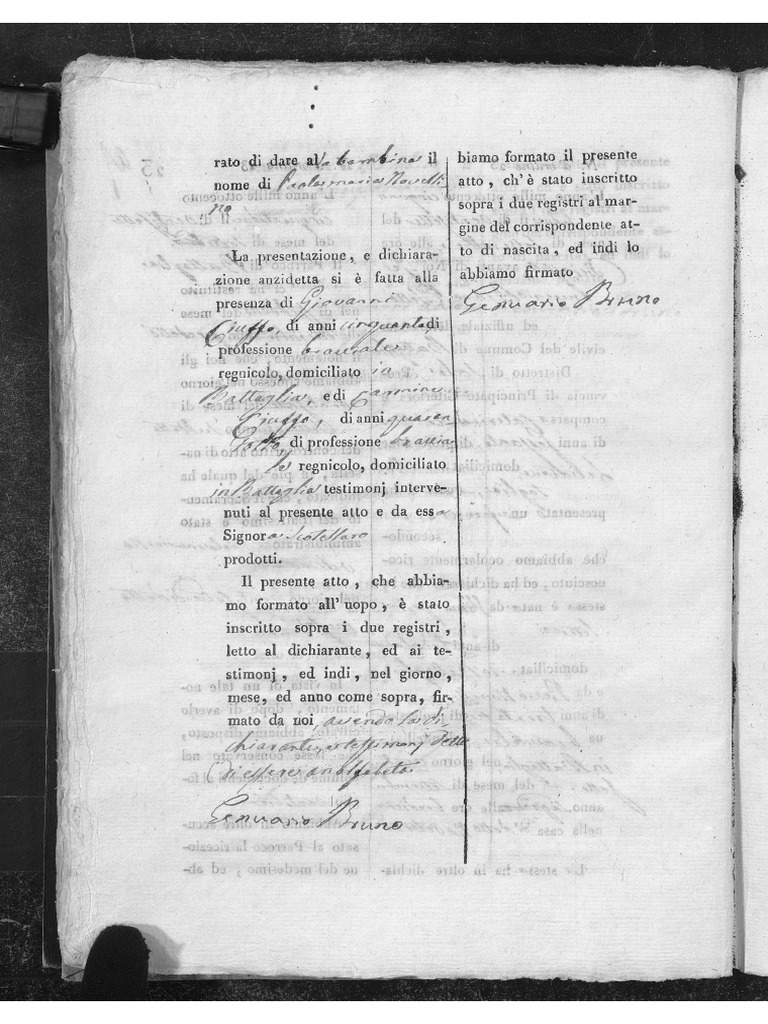 rato di dare alla bambina il
nome di maria Novelli
no
La presentazione, e dichiara-
zione anzidetta si è fatta alla
presenza di Giovanni
Ciuffo, di anni cinquanta di
professione bracciale
regnicolo, domiciliato in
Battaglia, e di Carmine
Ciuffo, di anni quaran
totto di professione braccia
le regnicolo, domiciliato
in Battaglia testimonj interve-
nuti al presente atto e da essa
Signora Scotellaro
prodotti.
Il presente atto, che abbia-
mo formato all'uopo, è stato
inscritto sopra i due registri,
letto al dichiarante, ed ai te-
stimonj, ed indi, nel giorno,
mese, ed anno come sopra, fir-
mato da noi, avendo la di
chiarante, e testimonj detto
di essere analfabeta.
Genuario Bruno
biamo formato il presente
atto, ch'è stato inscritto
sopra i due registri al mar-
gine del corrispondente at-
to di nascita, ed indi lo
abbiamo firmato
Genuario Bruno